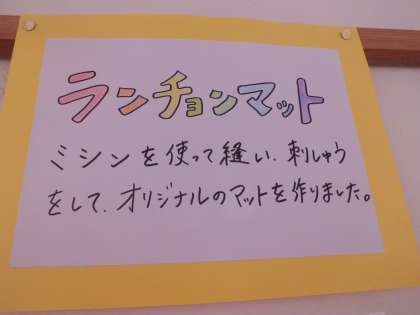 ランチョンマット
ミシンを使って縫い、刺しゅう
をして、オリジナルのマットを作りました。